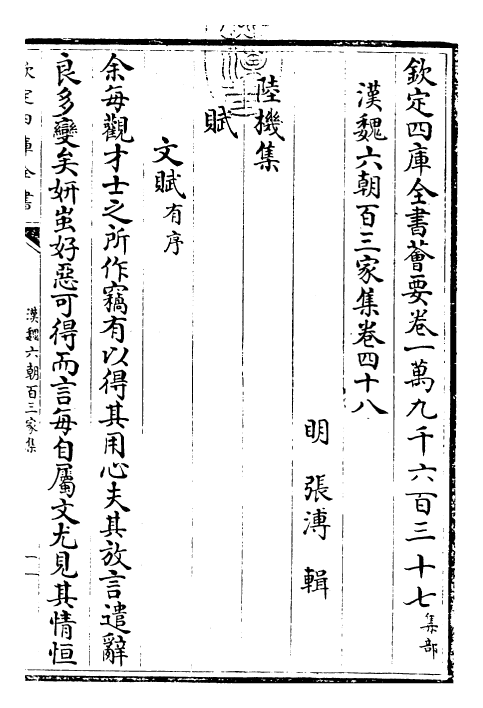 欽定四庫全書薈要卷一萬九千六百三十七 集部
漢魏六朝百三家集卷四十八
明 張溥 輯
陸機集
賦
文賦 有序
余每觀才士之所作竊有以得其用心夫其放言遣辭
良多變矣妍蚩好惡可得而言每自屬文尤見其情恒
欽定四庫全書
漢魏六朝百三家集
一